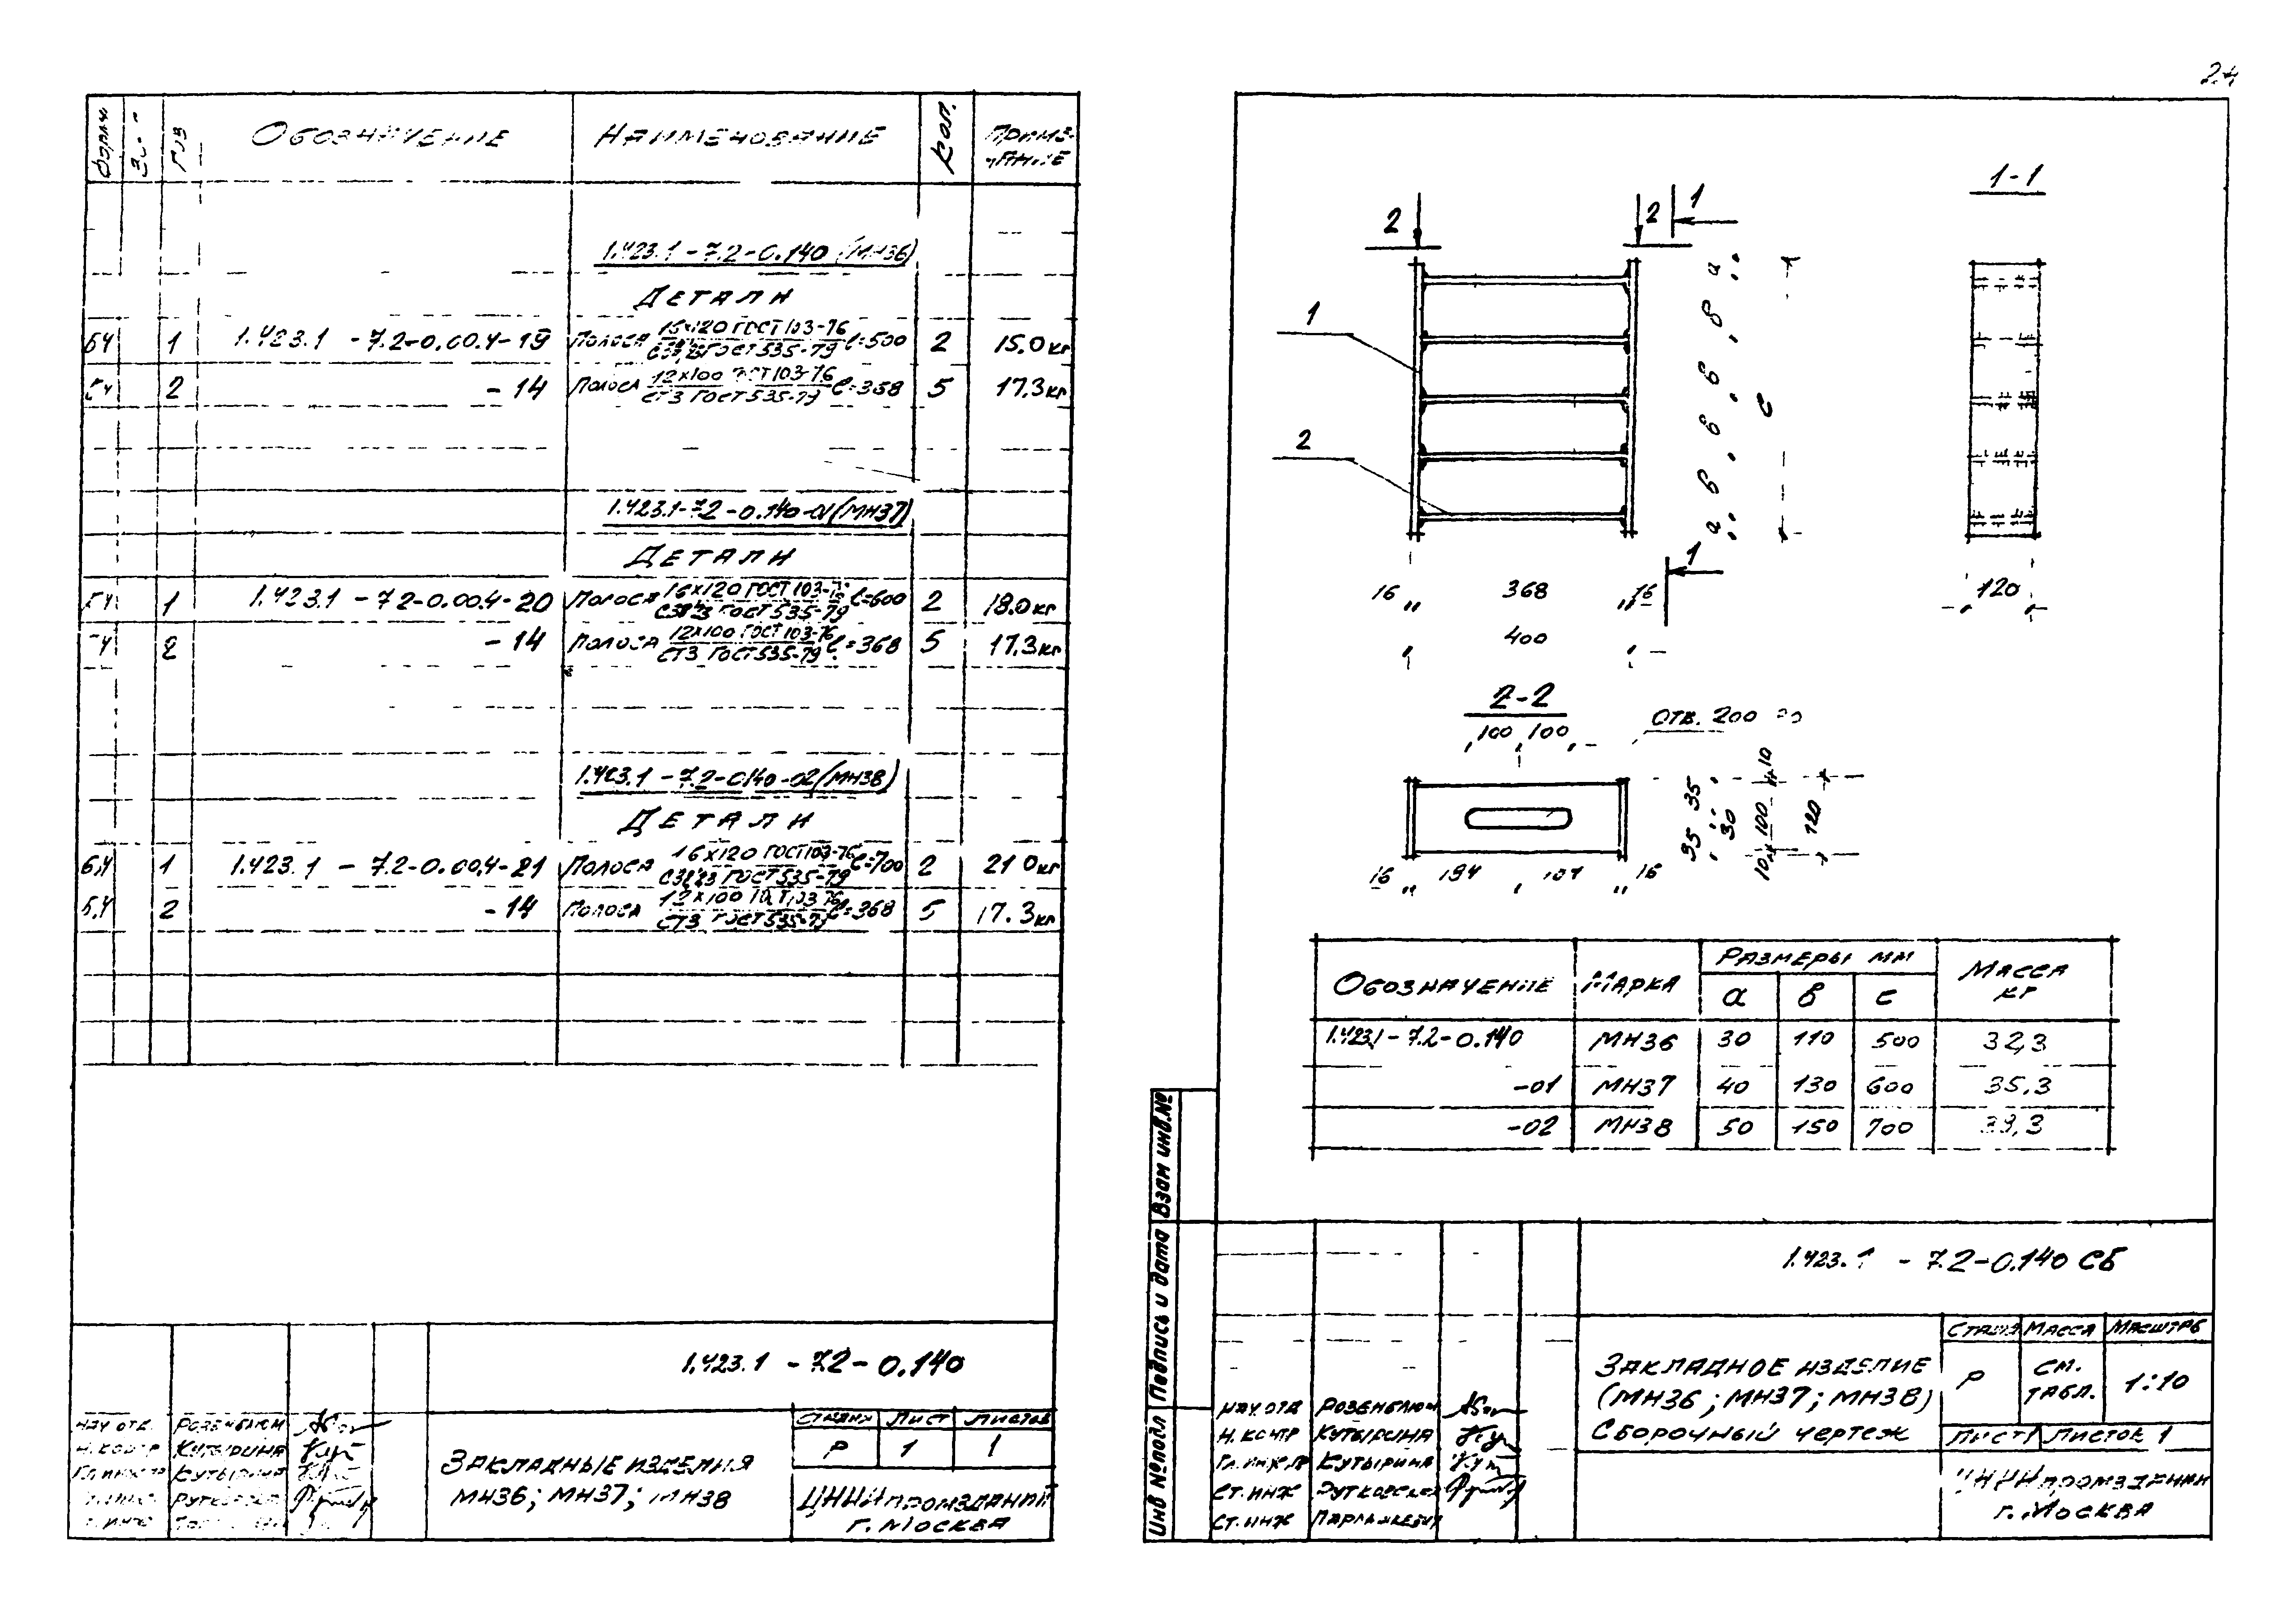 24
ОБОЗНАЧЕНИЕ НАИМЕНОВАНИЕ КОЛ. ПРИМЕ-
ЧАНИЕ
1.423.1-7.2-0.140 (МН36)
ДЕТАЛИ
БЧ 1 1.423.1 -7.2-0.00.4-19 ПОЛОСА 16×120 ГОСТ 103-76 ℓ=500 2 15.0 кг
ГОСТ 535-79
БЧ 2 -14 ПОЛОСА 12×100 ГОСТ 103-76 ℓ=368 5 17.3 кг
СТ3 ГОСТ 535-79
1.423.1-7.2-0.140-01 (МН37)
ДЕТАЛИ
БЧ 1 1.423.1 -7.2-0.00.4-20 ПОЛОСА 16×120 ГОСТ 103-76 ℓ=600 2 18.0 кг
ГОСТ 535-79
БЧ 2 -14 ПОЛОСА 12×100 ГОСТ 103-76 ℓ=368 5 17.3 кг
СТ3 ГОСТ 535-79
1.423.1-7.2-0.140-02 (МН38)
ДЕТАЛИ
БЧ 1 1.423.1 -7.2-0.00.4-21 ПОЛОСА 16×120 ГОСТ 103-76 ℓ=700 2 21.0 кг
ГОСТ 535-79
БЧ 2 -14 ПОЛОСА 12×100 ГОСТ 103-76 ℓ=368 5 17.3 кг
СТ3 ГОСТ 535-79
1.423.1 -7.2-0.140
НАЧ ОТД. РОЗЕНБЛЮМ
Н. КОНТР КУТЫРИНА
ГЛ.ИНЖ.ПР КУТЫРИНА
СТ.ИНЖ РУТКОВСКАЯ
СТ.ИНЖ
ЗАКЛАДНЫЕ ИЗДЕЛИЯ
МН36; МН37; МН38
СТАДИЯ ЛИСТ ЛИСТОВ
Р 1 1
ЦНИИПРОМЗДАНИЙ
Г. МОСКВА
1-1
2 2 1
1
2
1
а в в в в а
с
16 368 16
400
120
2-2
100 100
ОТВ. 200
35 30 35
10 100 10
120
16 184 184 16
ОБОЗНАЧЕНИЕ МАРКА РАЗМЕРЫ ММ МАССА
КГ
а в с
1.423.1-7.2-0.140 МН36 30 110 500 32,3
-01 МН37 40 130 600 35,3
-02 МН38 50 150 700 38,3
1.423.1 -7.2-0.140 СБ
НАЧ. ОТД РОЗЕНБЛЮМ
Н. КОНТР КУТЫРИНА
ГЛ.ИНЖ.ПР КУТЫРИНА
СТ.ИНЖ РУТКОВСКАЯ
СТ.ИНЖ
ЗАКЛАДНОЕ ИЗДЕЛИЕ
(МН36; МН37; МН38)
СБОРОЧНЫЙ ЧЕРТЕЖ
СТАДИЯ МАССА МАСШТАБ
Р СМ. ТАБЛ. 1:10
ЛИСТ 1 ЛИСТОВ 1
ЦНИИПРОМЗДАНИЙ
Г. МОСКВА
Инв №подл Подпись и дата Взам инв.№